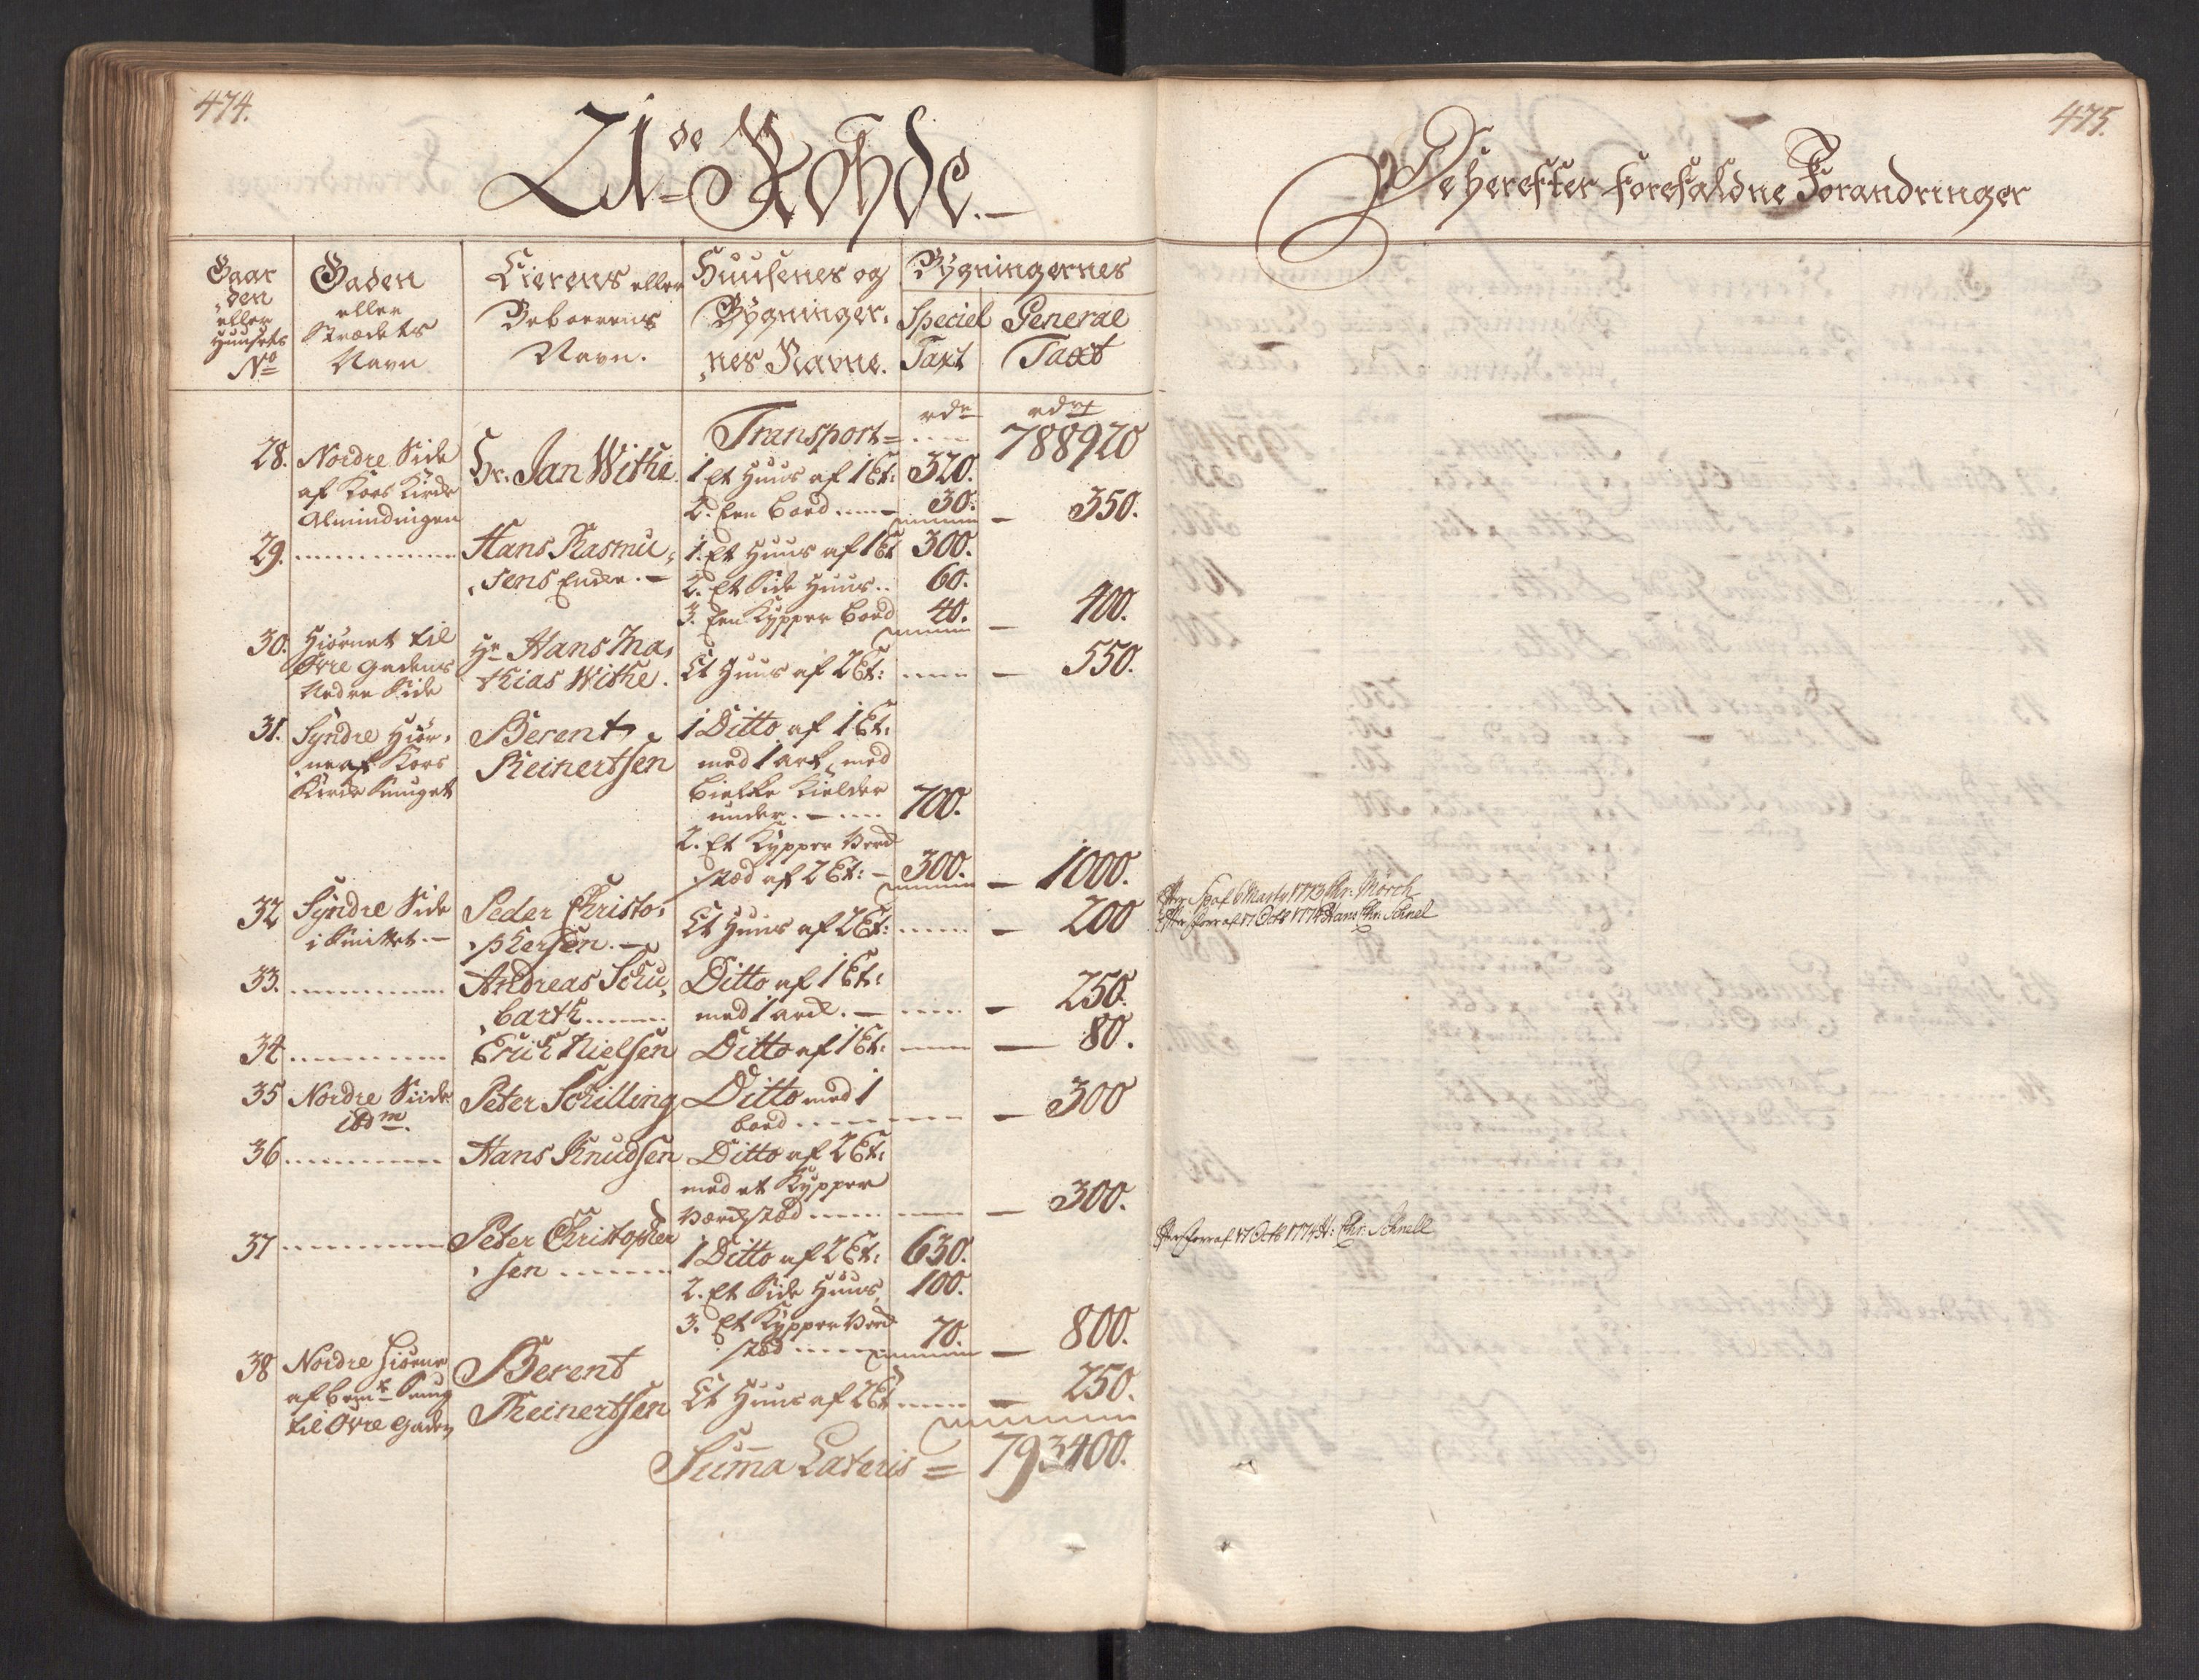 474.
21de Rohde.
Gaar
den
eller
Huusets
No
Gaden
eller
Strædets
Navn
Eierens eller
Beboerens
Navn.
Huusenes og
Bygninger,
nes Navne.
Bygningernes
Speciel
Taxt
General
Taxt
rdr
rdr
Transport = 788920
28. Nordre Side
af Kors Kirke
Almindingen
Hr. Jan Withe.
1. Et Huus af 1 Et: 320.
2. Een Boed 30. 350.
29.
Hans Rasmu,
,sens Enke.
1. Et Huus af 1 Et 300.
2. Et Side Huus 60.
3. Een Kypper Boed 40. 400.
30. Hiørnet til
Øvre Gadens
Nedre Side
Hr Hans Ma,
thias Withe.
Et Huus af 2 Et: 550.
31. Syndre Hiør,
ne af Kors
Kirke Smuget
Berent
Reinertsen
1 Ditto af 1 Et:
med 1 Ark, med
Bielke Kielder
under. 700.
2. Et Kypper Verk
stæd af 2 Et: 300. 1000.
32 Syndre Side
i Smittet.
Peder Christo,
,phersen.
Et Huus af 2 Et: 200
33.
Andreas Schu,
,barth
Ditto af 1 Et:
med 1 Ark. 250.
34
Erich Nielsen
Ditto af 1 Et: 80.
35 Nordre Siide
ibdm.
Peter Schilling
Ditto med 1
Boed 300
36
Hans Knudsen
Ditto af 2 Et:
med et Kypper
Værkstæd 300.
37
Peter Christopher
,sen
1 Ditto af 2 Et: 630.
2. Et Side Huus 100.
3. Et Kypper Verk
stæd 70. 800.
38 Nordre Hiørne
af bemte Smug
til Øvre Gaden
Berent
Reinertsen
Et Huus af 2 Et 250.
Summa Lateris = 793400.
475.
De herefter forefaldne Forandringer
6 Marty 1773 Chr: Mørch
17 Octb 1774 Hans Chr: Schnel
17 Octb 1774 H: Chr: Schnell